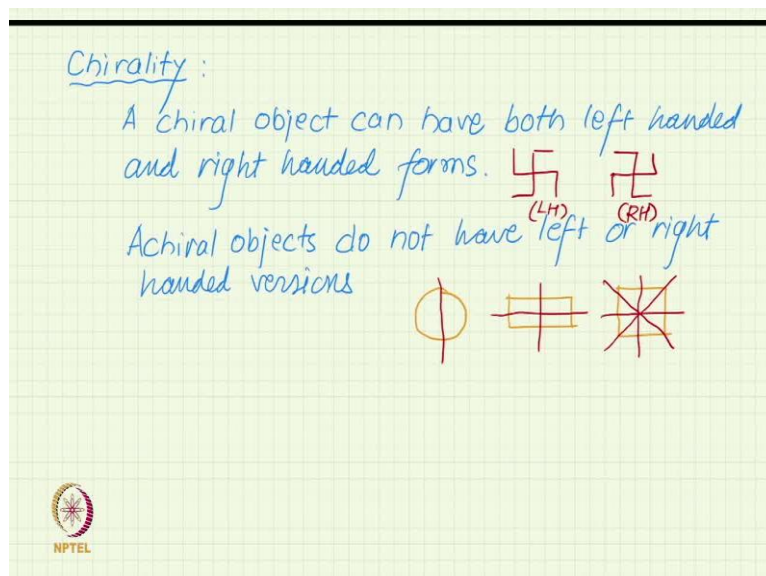 Chirality :
A chiral object can have both left handed
and right handed forms.
(LH) (RH)
Achiral objects do not have left or right
handed versions
NPTEL